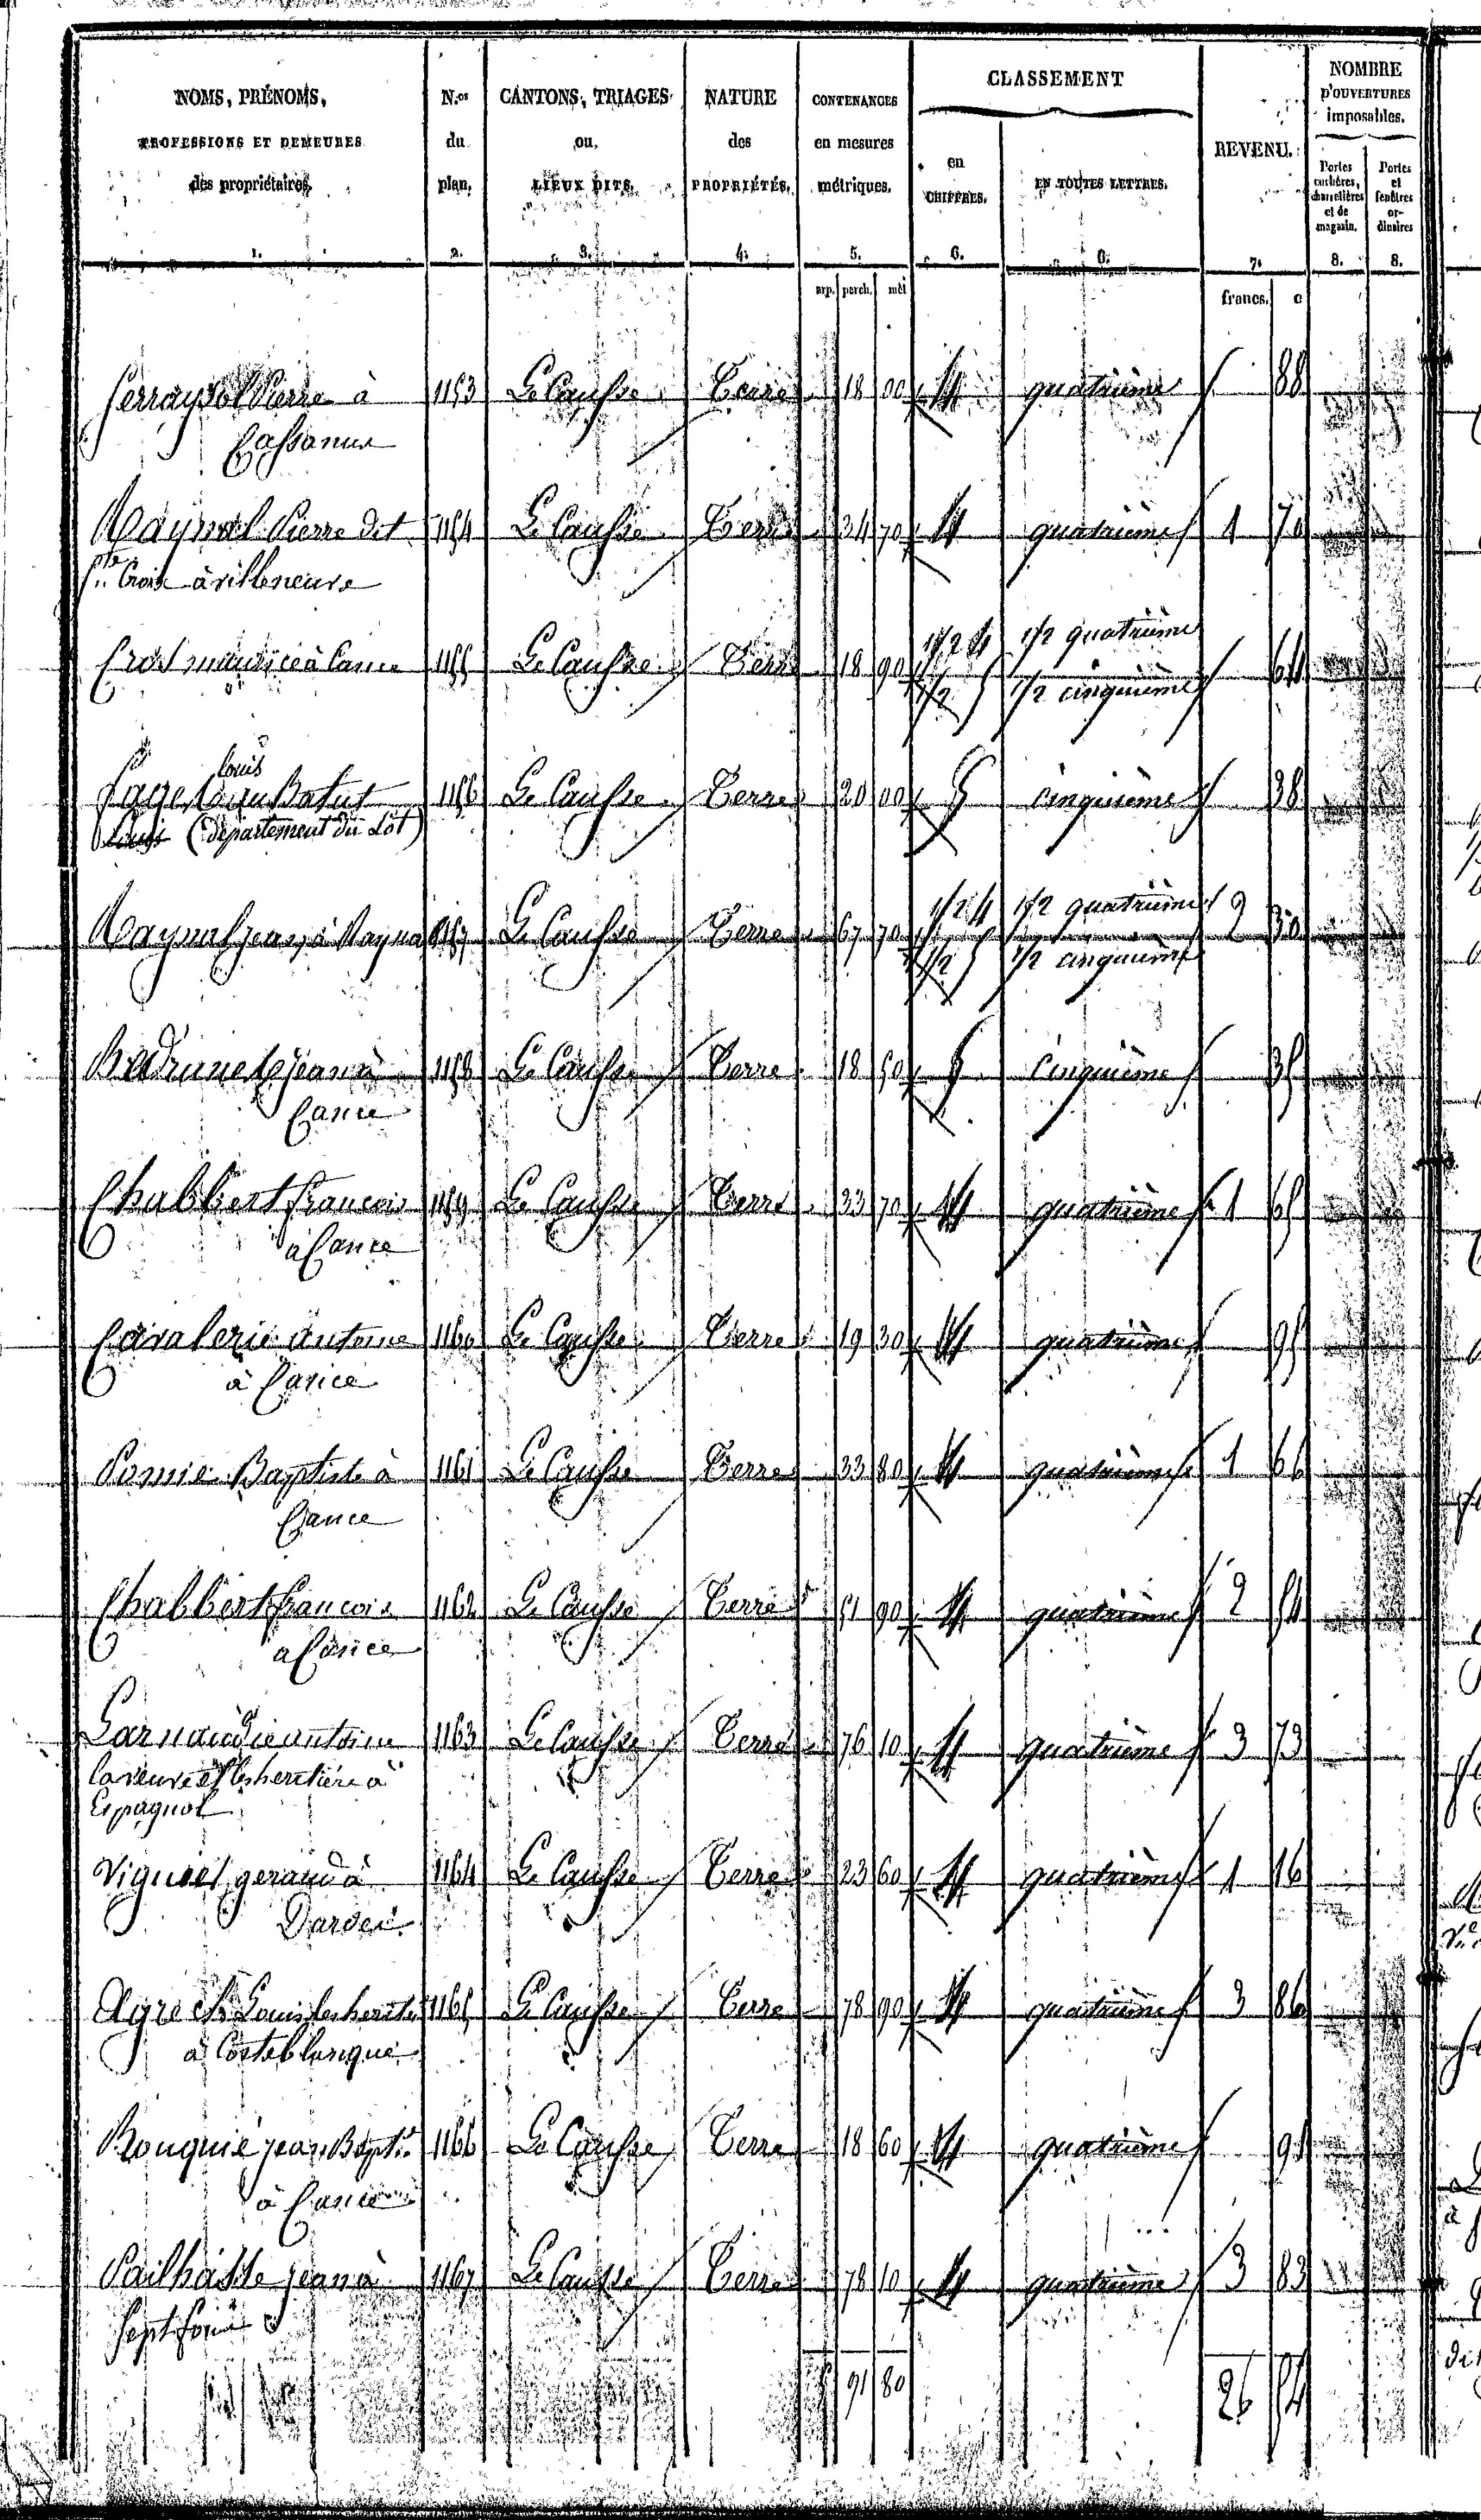 NOMS, PRÉNOMS, PROFESSIONS ET DEMEURES des propriétaires. 1.
N.os du plan. 2.
CANTONS, TRIAGES ou LIEUX DITS. 3.
NATURE des PROPRIÉTÉS. 4.
CONTENANCES en mesures métriques. 5.
CLASSEMENT
en CHIFFRES. 6.
EN TOUTES LETTRES. 6.
REVENU. 7.
NOMBRE D'OUVERTURES imposables.
Portes cochères, charretières et de magasin. 8.
Portes et fenêtres ordinaires 8.
arp. perch. mèt francs. c
Pierre à 1153 Le Causse Terre 18 00 4 quatrième 88
Cassanus
Raynal Pierre dit 1154 Le Causse Terre 34 70 4 quatrième 1 70
Ste Croix à villeneuve
1/2 4 1/2 quatrième
Cros maurice à Cance 1155 Le Causse Terre 18 90 64
1/2 5 1/2 cinquième
louis
Batut 1156 Le Causse Terre 20 00 5 cinquième 38
Louis (département du Lot)
1/2 4 1/2 quatrième
Raynal jean à Rayna 1157 Le Causse Terre 67 70 2 30
1/2 5 1/2 cinquième
jean à 1158 Le Causse Terre 18 50 5 cinquième 35
Cance
Chabbert francois 1159 Le Causse Terre 33 70 4 quatrième 1 65
à Cance
Cavalerie antoine 1160 Le Causse Terre 19 30 4 quatrième 95
à Cance
Pomié Baptiste à 1161 Le Causse Terre 33 80 4 quatrième 1 66
Cance
Chabbert francois 1162 Le Causse Terre 51 90 4 quatrième 2 54
a Cance
Larnaudie antoine 1163 Le Causse Terre 76 10 4 quatrième 3 73
la veuve et les heretiers à
Espagnol
Viguié geraud à 1164 Le Causse Terre 23 60 4 quatrième 1 16
Dardei
Louis les herit 1165 Le Causse Terre 78 90 4 quatrième 3 86
à Costeblanque
Bouquié jean Bapte 1166 Le Causse Terre 18 60 4 quatrième 91
à Cance
Pailhasse jean à 1167 Le Causse Terre 78 10 4 quatrième 3 83
Septfons
5 91 80 26 54